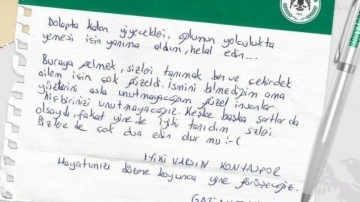 Dolapta kalan yiyecekleri, oğlunun yolculukta
yemesi için yanıma aldım, helal edin...
Buraya gelmek, sizleri tanımak ben ve çekirdek
ailem için çok güzeldi. İsmini bilmediğim ama
yüzlerini asla unutmayacağım güzel insanlar
hiçbirinizi unutmayacağız. Keşke başka şartlarda
olsaydı, fakat yine de iyiki tanıdım sizleri.
Bizlere de çok dua edin olur mu :-(
KONYASPOR
Hayatımızı düzene koyunca yine görüşeceğiz.